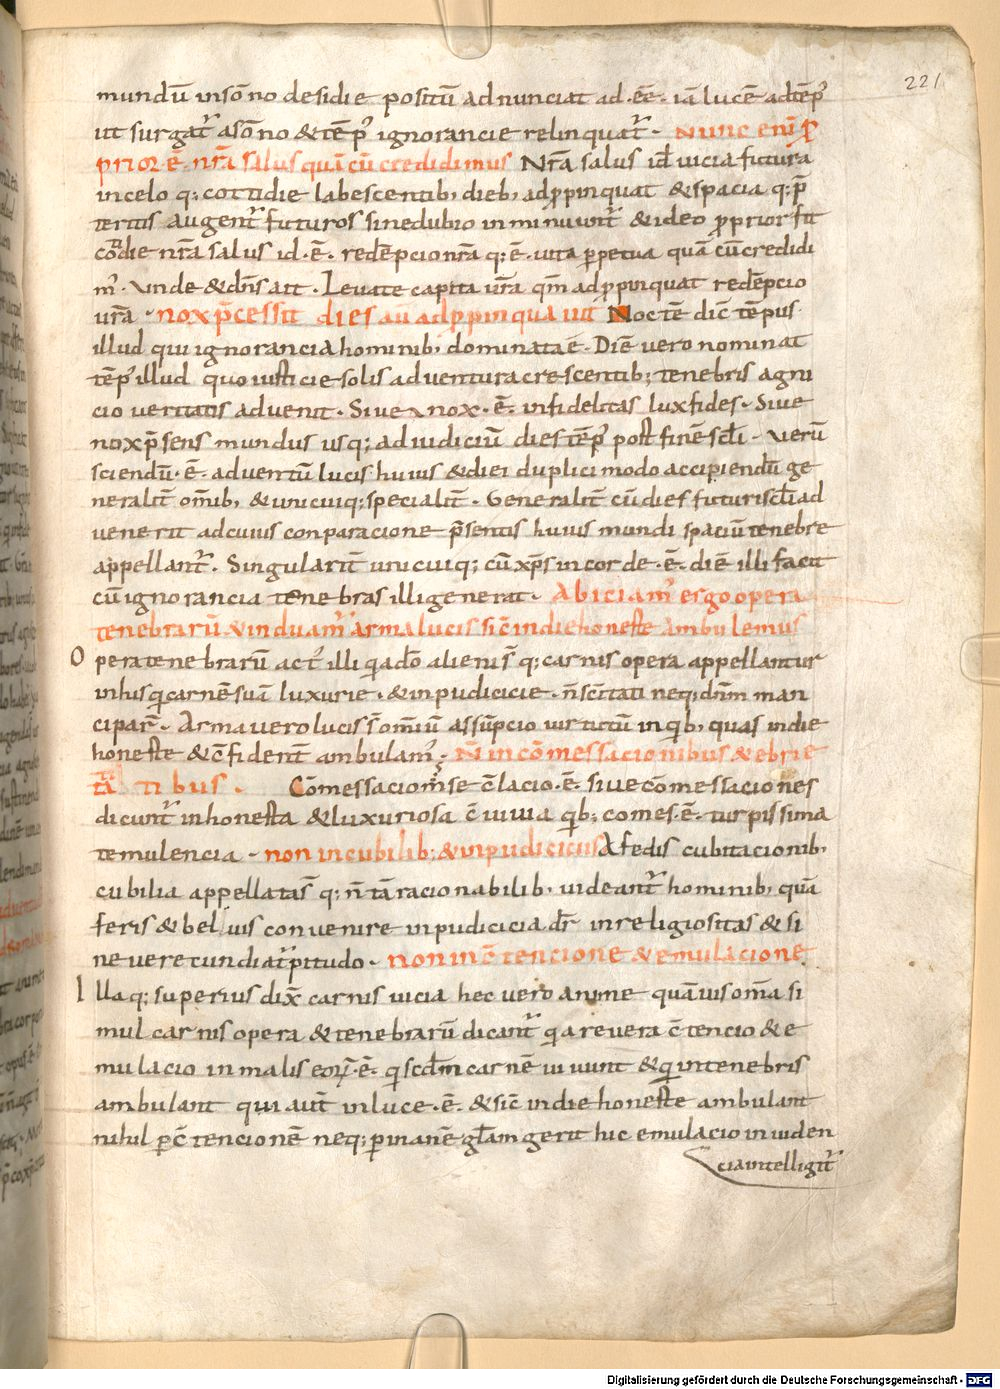 221
mundū insōno desidie positū adnunciat ad·eē· iā lucē adtēp᷒
ut surgat᷒ asōno & tēp᷒ ignorancie relinquat᷒· Nunc enī ꝓ
prior·ē· nrā salus quā cū credidimus Nrā salus id̄ vicia futura
in celo q; cottidie labescentib; dieb; adꝓpinquat & spacia q; p̄
teritis augent᷒ futuros sine dubio inminuunt᷒ & ideo ꝓprior fit
cotidie nrā salus id·ē· redēpcio nrā q;·ē· uita ꝑpetua quā cū credidi
m᷒· Unde & dn̄s ait· Levate capita urā qm̄ adꝓpinquat redēpcio
urā· nox p̄cessit dies aū adꝓpinquauit Noctē dic̄ tēpus
illud qui ignorancia hominib; dominata ē· Diē vero nominat
tēp᷒ illud quo iusticie solis adventura crescentib; tenebris agni
cio veritatis advenit· Sive nox·ē· infidelitas lux fides· Sive
nox p̄sens mundus usq; ad iudiciū dies tēp᷒ post finē scl̄i· Verū
sciendū·ē· adventū lucis huius & diei duplici modo accipiendū ge
neralit̄ om̄ib; & unicuiq; specialit̄· Generalit̄ cū dies futuri scl̄i ad
venerit ad cuius conparacione p̄sentis huius mundi spaciū tenebre
appellant᷒. Singularit̄ unicuiq; cū xp̄s in corde·ē· diē illi facit
cū ignorancia tenebras illi generat· Abiciam᷒ ergo opera
tenebrarū & induam᷒ arma lucis sic̄ in die honeste ambulemus
Opera tenebrarū act᷒ illi q; carnis opera appellantur
in his qi carnē suā luxurie· & inpudicicie· n̄ sc̄itati neq; dn̄m man
cipar̄· Arma vero lucis s̄ om̄iū assūpcio virtutū in qb; quas in die
honeste & c̄fident̄ ambulam᷒· N̄ in cōmessacionibus & ebrie
tatibus· Cōmessacio mse c̄lacio·ē· sive cōmessaciones
dicunt᷒ inhonesta & luxuriosa c̄vivia qb; comes·ē· turpissima
temulencia· non in cubilib; & inpudiciciis A fedis cubitacionib;
cubilia appellata s̄ q; n̄ tā racionabilib; videant᷒ hominib; quā
feris & beluis convenire inpudicicia dr̄ inreligiositas & si
ne verecundia t᷒pitudo· non in c̄tencione & emulacione
Illa q; superius dix̄ carnis vicia hec vero anime quāvis om̄a si
mul carnis opera & tenebrarū dicant᷒ qa revera c̄tencio & e
mulacio in malis eoꝝ·ē· qi scdm̄ carnē vivunt & qi in tenebris
ambulant qui aut̄ in luce·ē· & sic̄ in die honeste ambulant
nihil ꝑ c̄tencionē neq; ꝑ inanē gl̄am gerit hic emulacio inviden
cia intelligit᷒
Digitalisierung gefördert durch die Deutsche Forschungsgemeinschaft - DFG